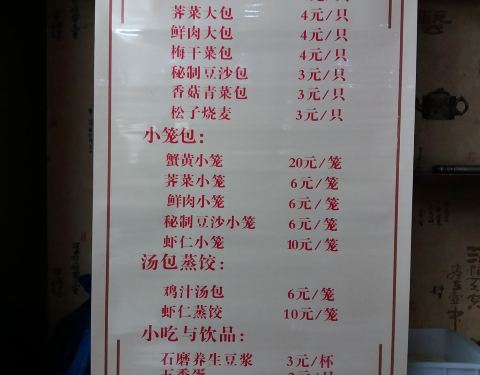 荠菜大包 4元/只
鲜肉大包 4元/只
梅干菜包 4元/只
秘制豆沙包 3元/只
香菇青菜包 3元/只
松子烧麦 3元/只
小笼包：
蟹黄小笼 20元/笼
荠菜小笼 6元/笼
鲜肉小笼 6元/笼
秘制豆沙小笼 6元/笼
虾仁小笼 10元/笼
汤包蒸饺：
鸡汁汤包 6元/笼
虾仁蒸饺 10元/笼
小吃与饮品：
石磨养生豆浆 3元/杯
五香蛋